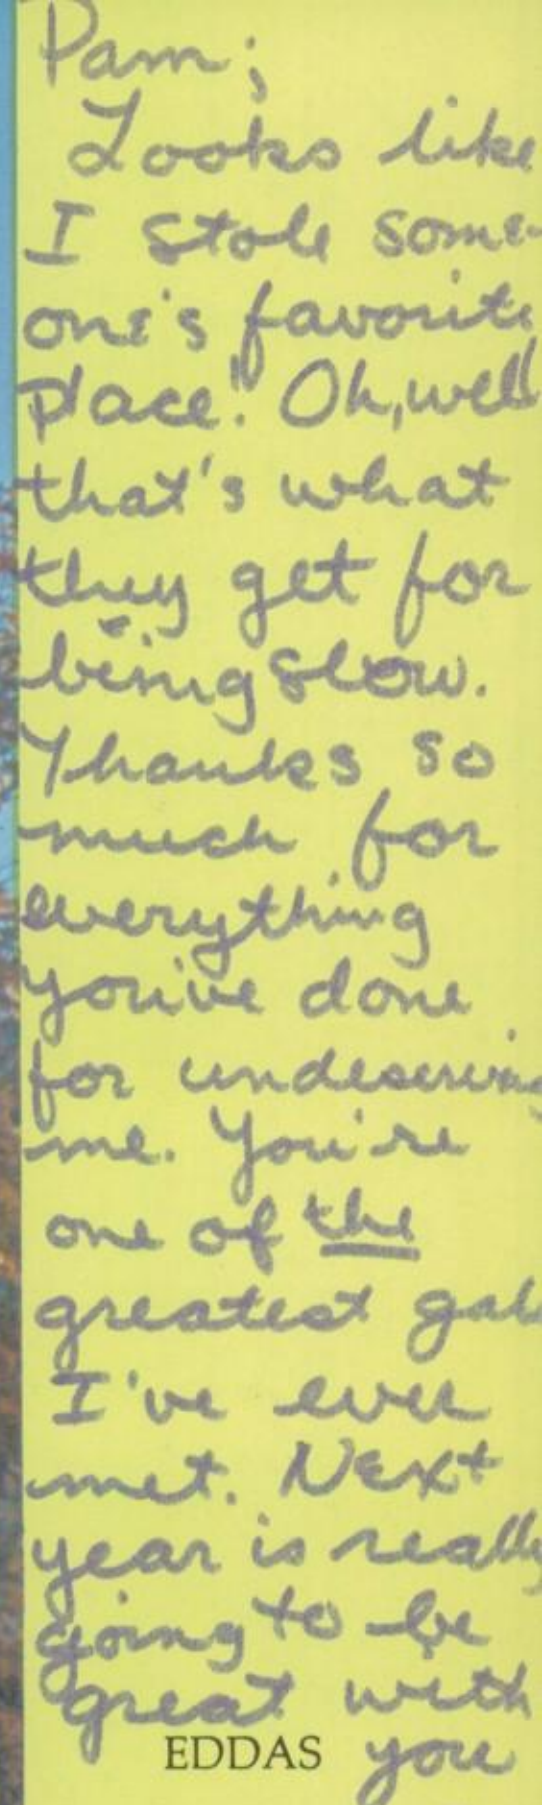 Pam;
Looks like
I stole some-
one's favorite
place! Oh, well
that's what
they get for
being slow.
Thanks so
much for
everything
you've done
for undeserving
me. You're
one of the
greatest gals
I've ever
met. Next
year is really
going to be
great with
EDDAS you